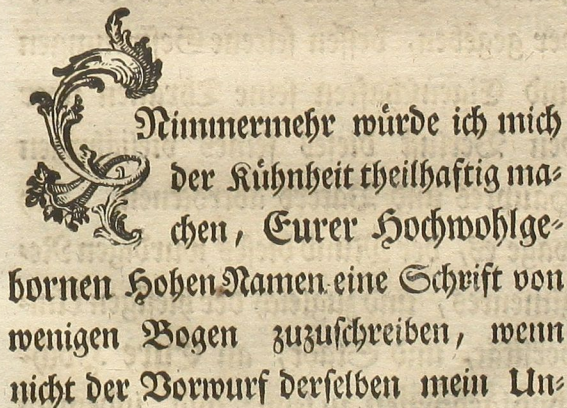 Nimmermehr würde ich mich
der Kühnheit theilhaftig ma-
chen, Eurer Hochwohlge-
bornen Hohen Namen eine Schrift von
wenigen Bogen zuzuschreiben, wenn
nicht der Vorwurf derselben mein Un-